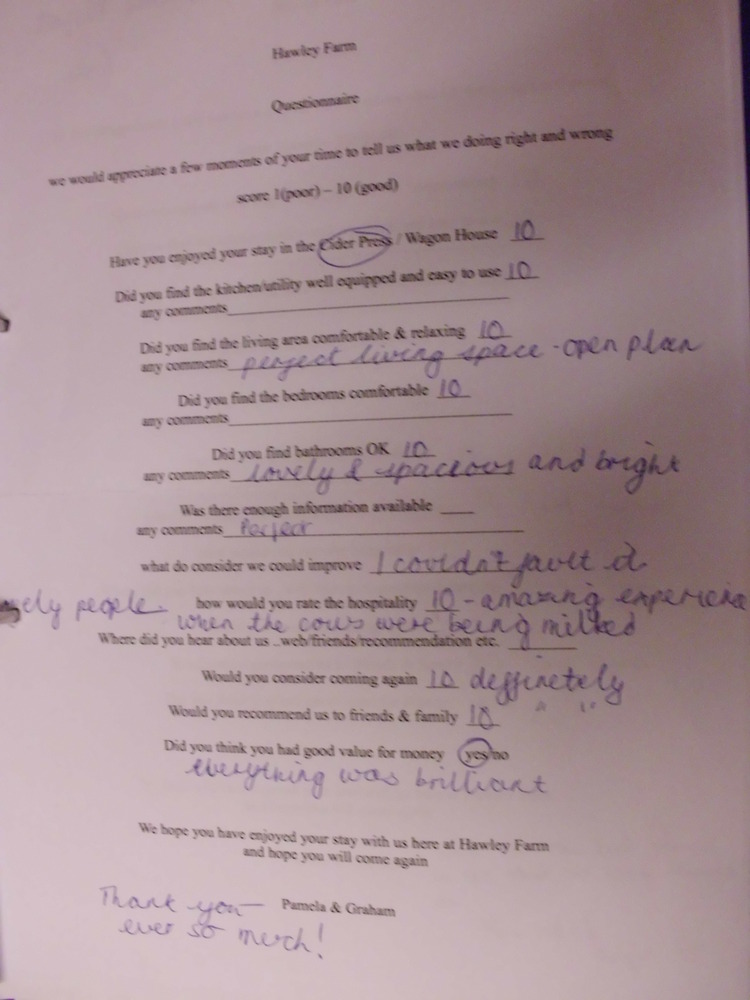 Hawley Farm
Questionnaire
we would appreciate a few moments of your time to tell us what we doing right and wrong
score 1(poor) – 10 (good)
Have you enjoyed your stay in the Cider Press / Wagon House 10
Did you find the kitchen/utility well equipped and easy to use 10
any comments
Did you find the living area comfortable & relaxing 10
any comments perfect living space - open plan
Did you find the bedrooms comfortable 10
any comments
Did you find bathrooms OK 10
any comments lovely & spacious and bright
Was there enough information available
any comments Perfect
what do consider we could improve I couldn't fault it
people. how would you rate the hospitality 10 - amazing experience
when the cows were being milked
Where did you hear about us ..web/friends/recommendation etc.
Would you consider coming again 10 deffinetely
Would you recommend us to friends & family 10 " "
Did you think you had good value for money yes/no
everything was brilliant
We hope you have enjoyed your stay with us here at Hawley Farm
and hope you will come again
Thank you— Pamela & Graham
ever so much!